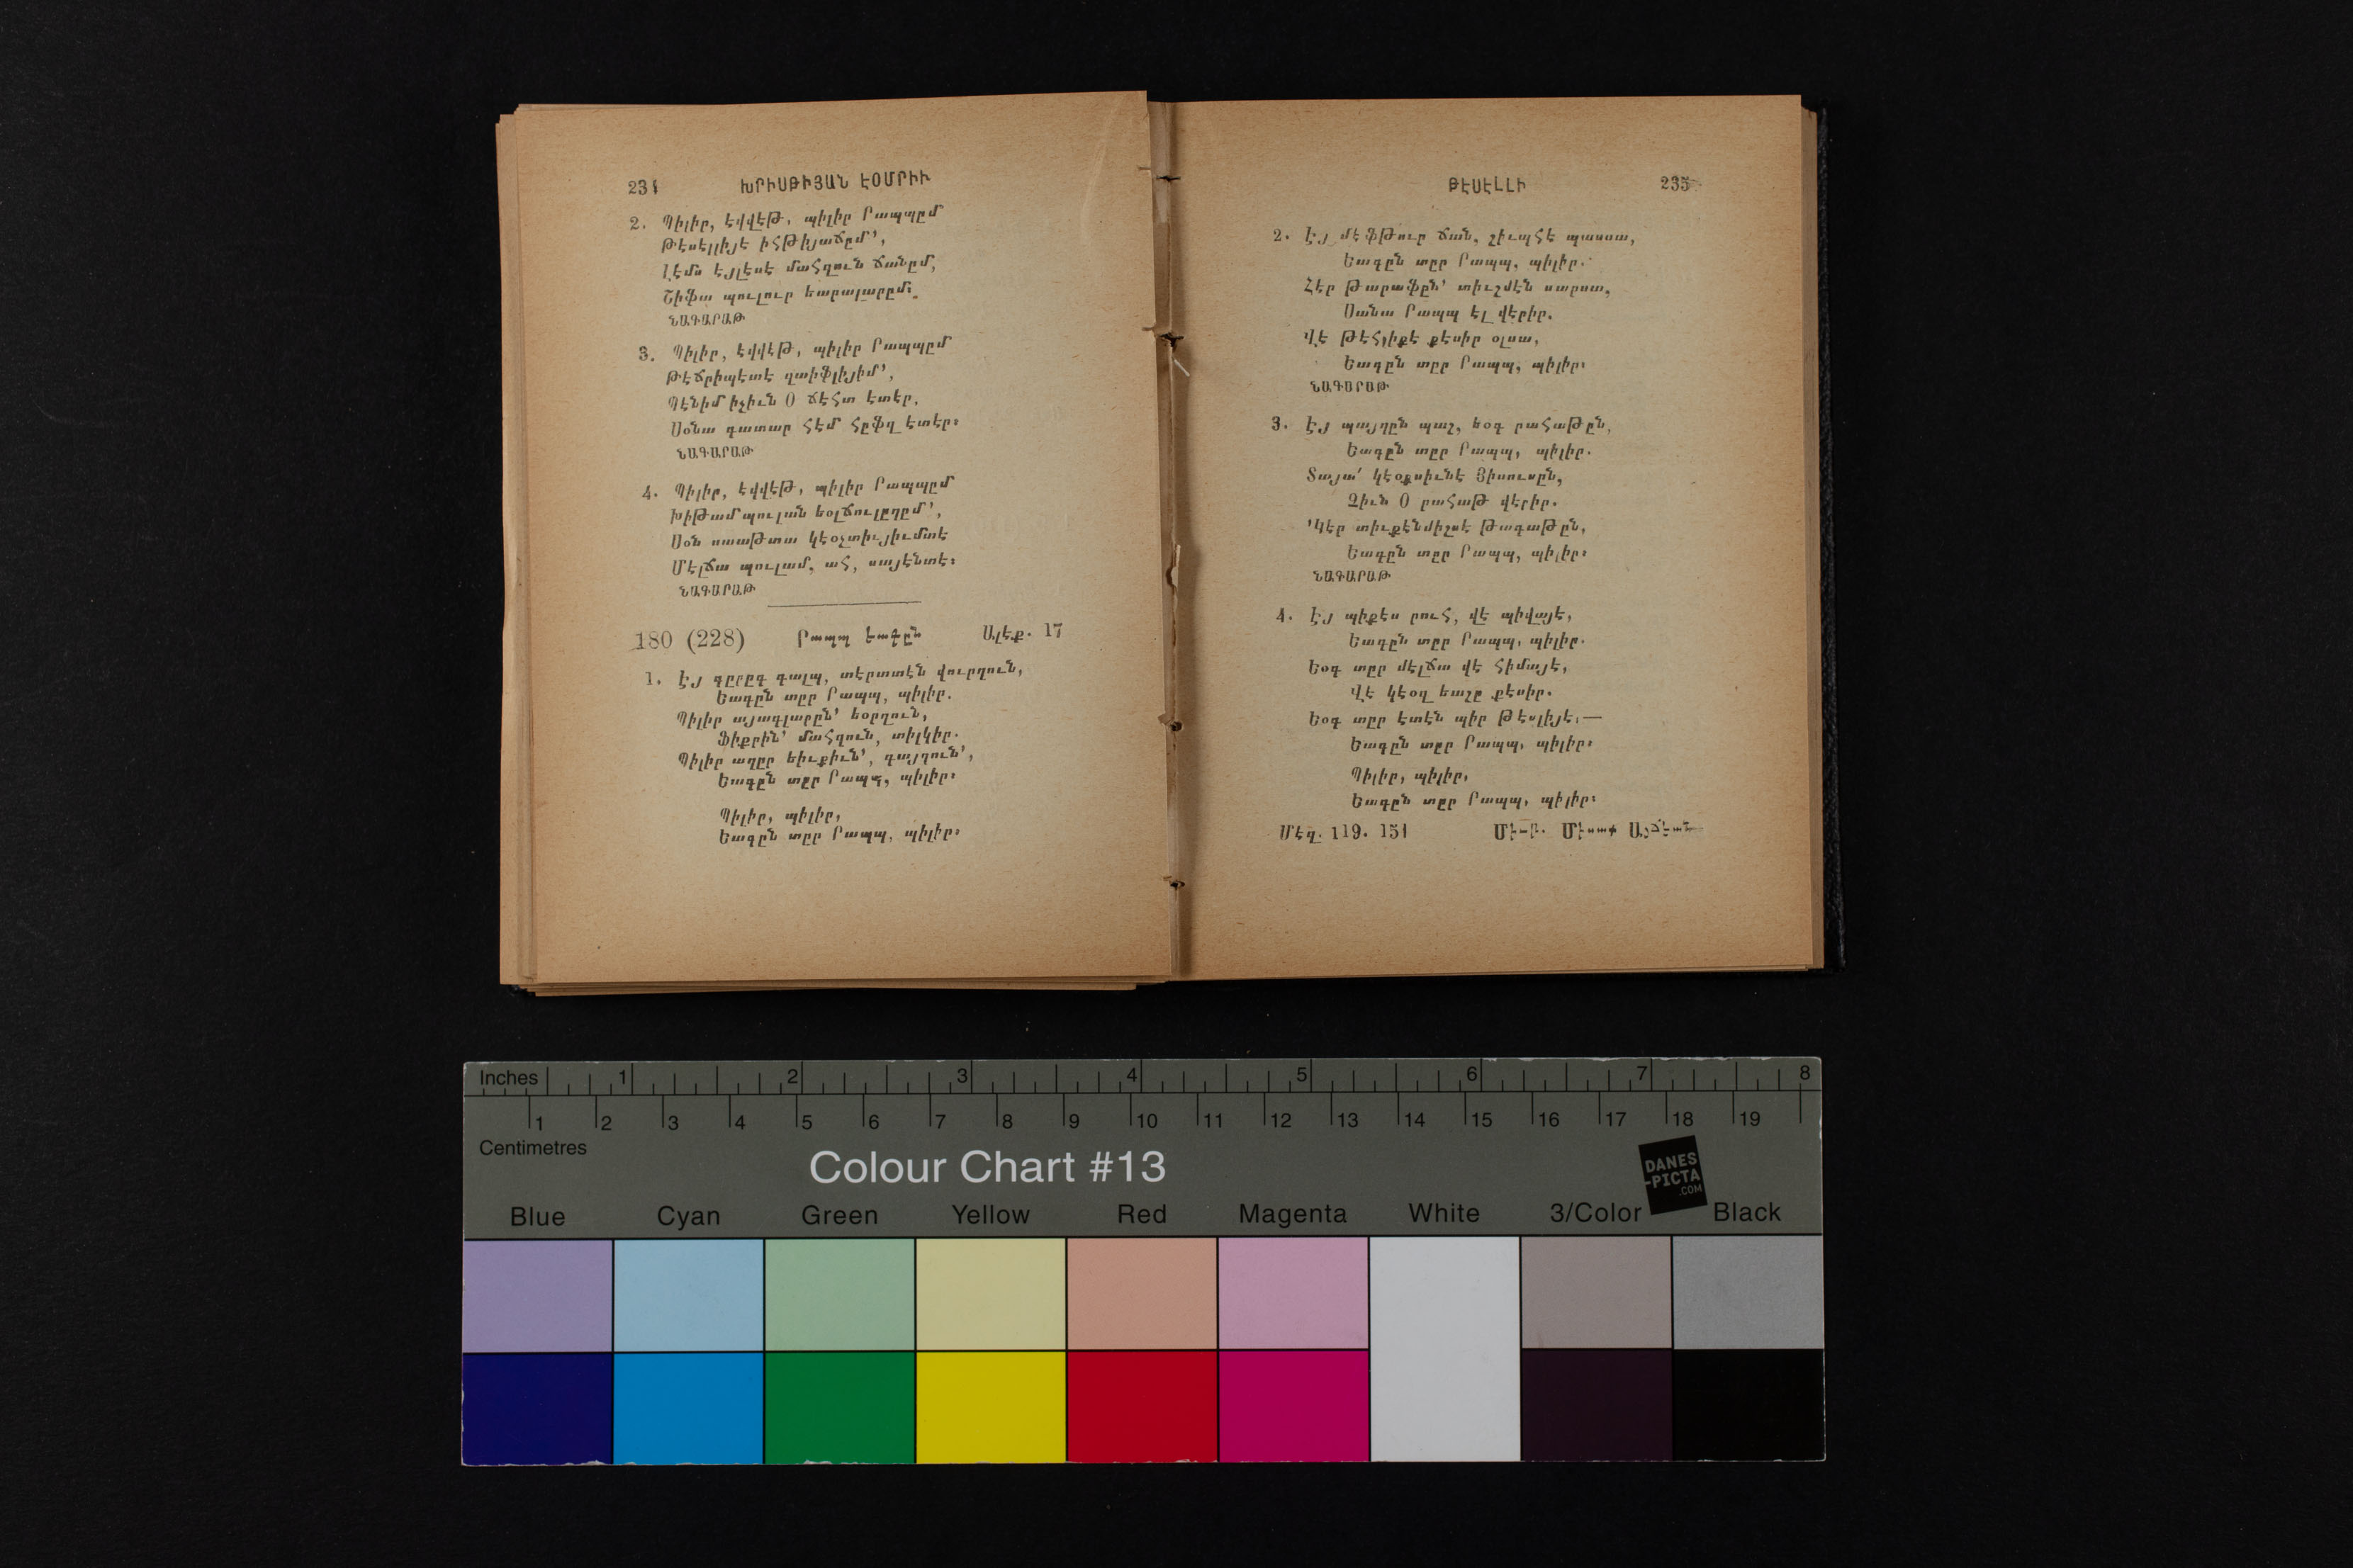 234 ԽՐԻՍԹԻՅԱՆ ԷՕՄՐԻՒ
2. Պիլիր, էվվէթ, պիլիր Րապպըմ
Թէսէլլիյէ իհթիյաճըմ՚,
Լէմս էյլէսէ մահզուն ճանըմ,
Շիֆա պուլուր եարալարըմ։
ՆԱԳԱՐԱԹ
3. Պիլիր, էվվէթ, պիլիր Րապպըմ
Թէճրիպէտէ զաիֆլիյիմ՚,
Պէնիմ իչիւն Օ ճէհտ էտէր,
Սօնա գատար հէմ հըֆզ էտէր։
ՆԱԳԱՐԱԹ
4. Պիլիր, էվվէթ, պիլիր Րապպըմ
Խիթամ պուլան եօլճուլըղըմ՚,
Սօն սաաթտա կէօչտիւյիւմտէ
Մէլճա պուլամ, ահ, սայէնտէ։
ՆԱԳԱՐԱԹ
180 (228) Րապպ եագըն Ալէք. 17
1. Էյ գըրըգ գալպ, տէրտտէն վուրղուն,
Եագըն տըր Րապպ, պիլիր.
Պիլիր այագլարըն՚ եօրղուն,
Ֆիքրին՚ մահզուն, տիլկիր.
Պիլիր աղըր եիւքիւն՚, գայղուն՚,
Եագըն տըր Րապպ, պիլիր։
Պիլիր, պիլիր,
Եագըն տըր Րապպ, պիլիր։
ԹԷՍԷԼԼԻ 235
2. Էյ մէֆթուր ճան, շիւպհէ պասսա,
Եագըն տըր Րապպ, պիլիր.
Հէր թարաֆըն՚ տիւշմէն սարսա,
Սանա Րապպ էլ վէրիր.
Վէ թէհլիքէ քէսիր օլսա,
Եագըն տըր Րապպ, պիլիր։
ՆԱԳԱՐԱԹ
3. Էյ պայղըն պաշ, եօգ րահաթըն,
Եագըն տըր Րապպ, պիլիր.
Տայա՛ կէօքսիւնէ Յիսուսըն,
Զիւն Օ րահաթ վէրիր.
՚Կէր տիւքէնմիշսէ թագաթըն,
Եագըն տըր Րապպ, պիլիր։
ՆԱԳԱՐԱԹ
4. Էյ պիքէս րուհ, վէ պիվայէ,
Եագըն տըր Րապպ, պիլիր.
Եօգ տըր մէլճա վէ հիմայէ,
Վէ կէօզ եաշը քէսիր.
Եօգ տըր էտէն պիր թէսլիյէ,—
Եագըն տըր Րապպ, պիլիր։
Պիլիր, պիլիր,
Եագըն տըր Րապպ, պիլիր։
Մէզ. 119. 151
Inches 1 2 3 4 5 6 7 8
1 2 3 4 5 6 7 8 9 10 11 12 13 14 15 16 17 18 19
Centimetres
Colour Chart #13
DANES
-PICTA
.COM
Blue Cyan Green Yellow Red Magenta White 3/Color Black